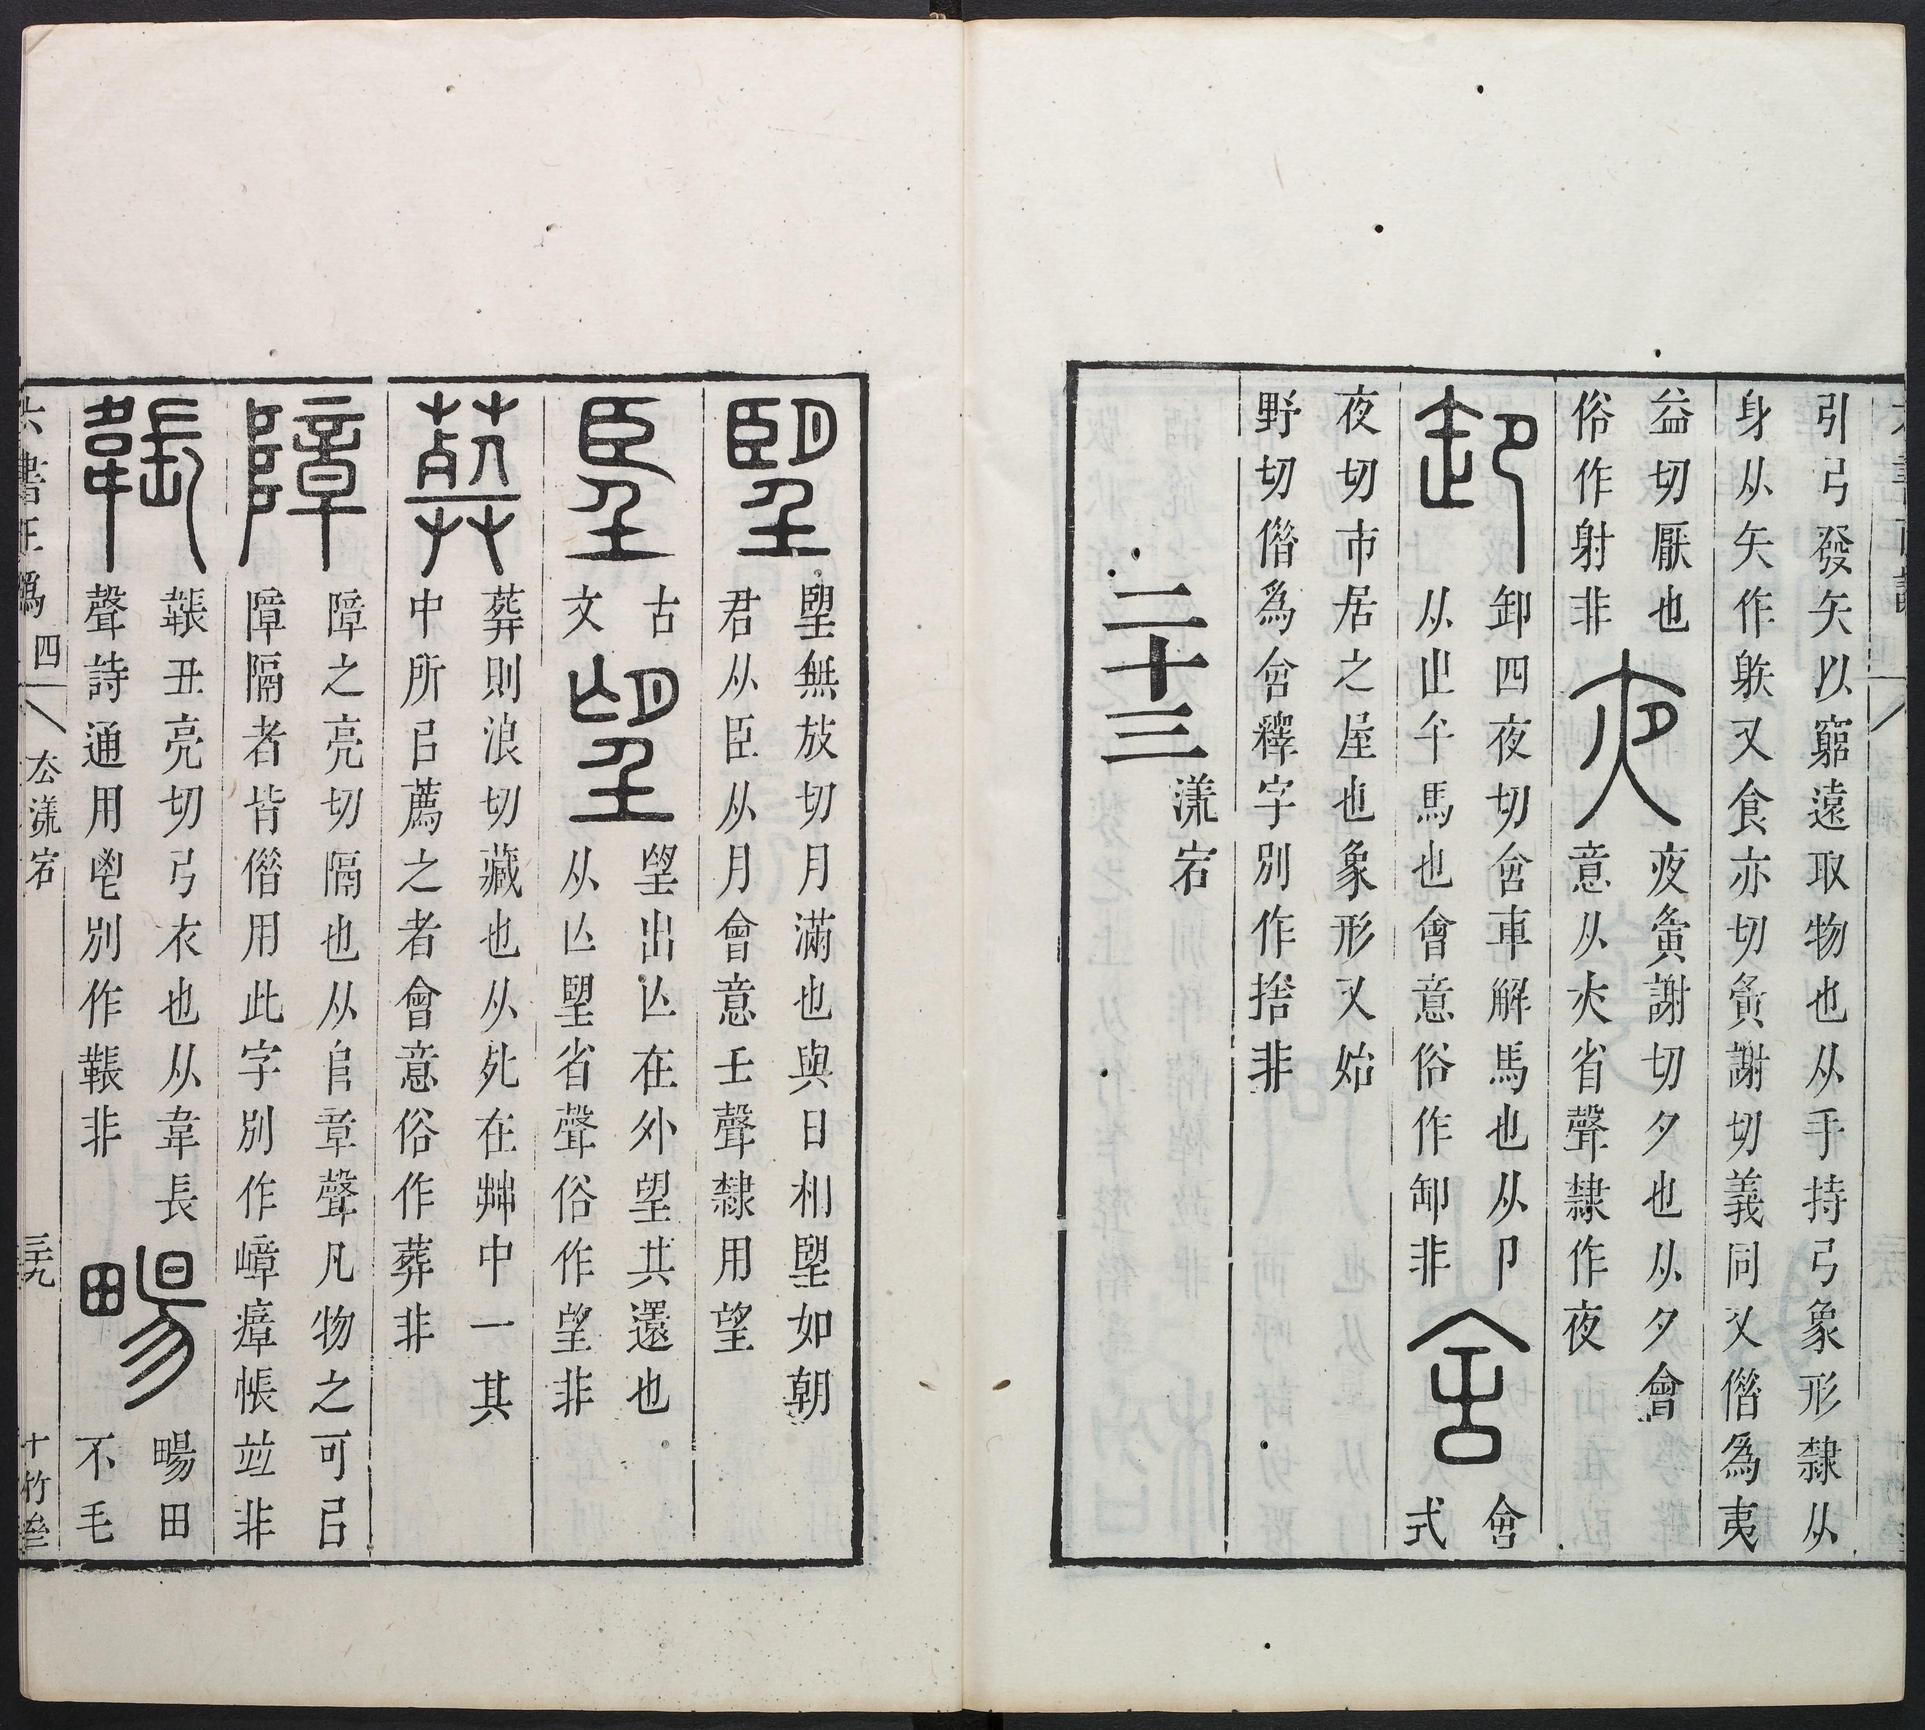 引弓發矢以窮遠取物也从手持弓象形隸从
身从矢作䠶又食亦切夤謝切義同又僭爲夷
益切厭也
俗作射非
夜夤謝切夕也从夕會
意从亦省聲隸作夜
卸四夜切舍車解馬也从卩
从止午馬也會意俗作卸非
舍式
夜切市居之屋也象形又始
野切僭爲舍釋字別作捨非
二十三漾宕
朢無放切月滿也與日相朢如朝
君从臣从月會意壬聲隸用望
古
文
望出亾在外望其還也
从亾朢省聲俗作望非
葬則浪切藏也从死在茻中一其
中所㠯薦之者會意俗作葬非
障之亮切隔也从𨸏章聲凡物之可㠯
障隔者皆僭用此字別作嶂瘴帳竝非
韔丑亮切弓衣也从韋長
聲詩通用鬯別作韔非
畼田
不毛
六書正譌 四 去漾宕 三十九 十竹齋